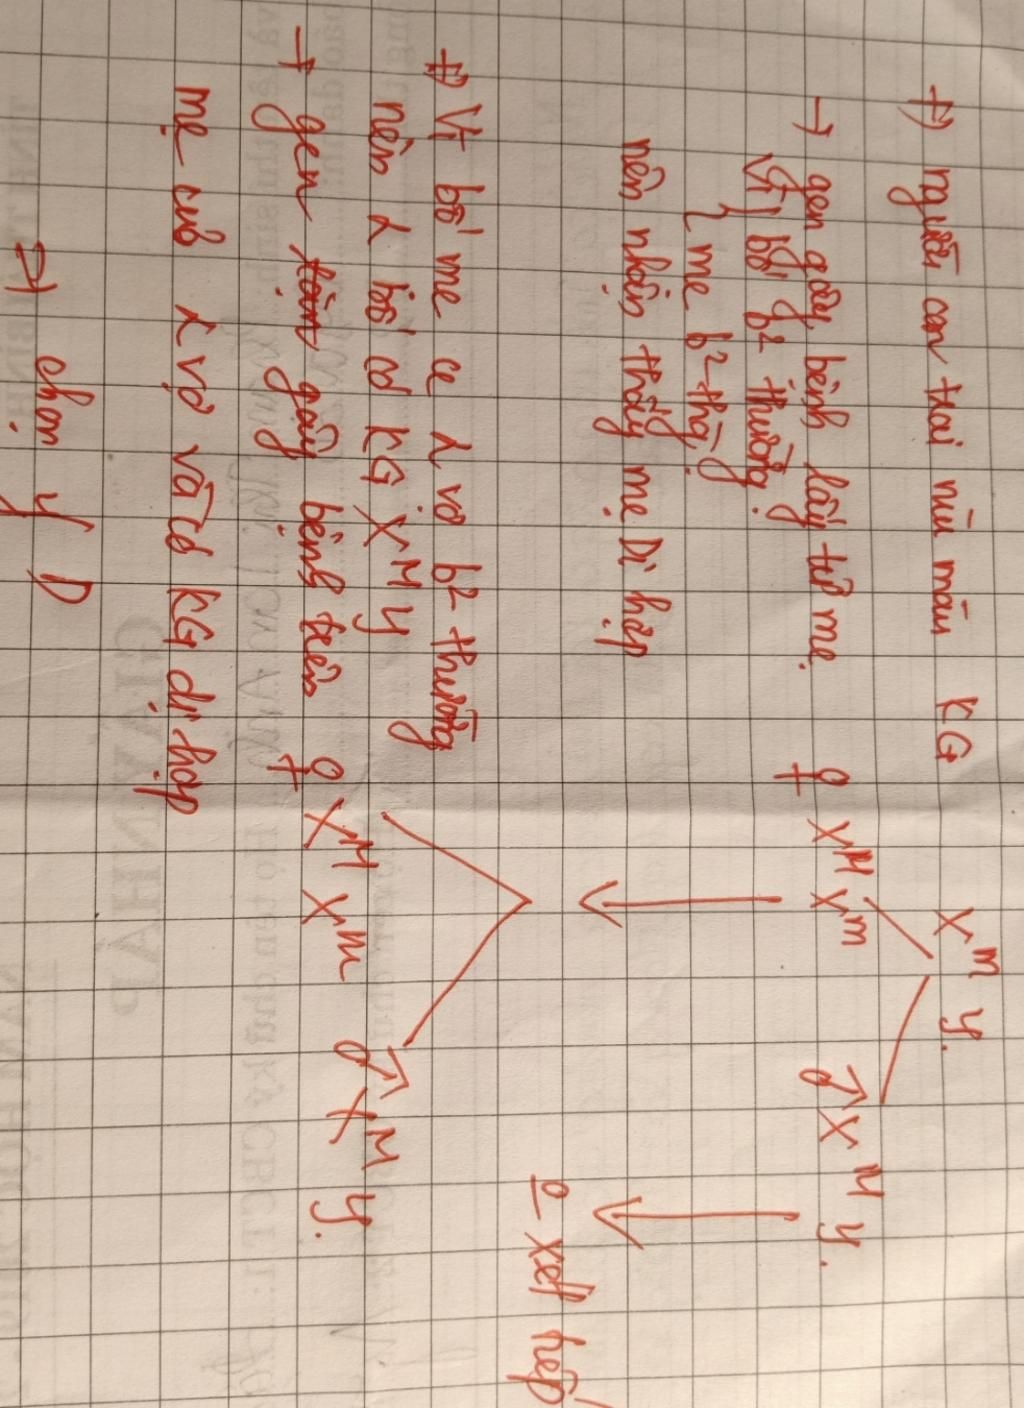 +) người con trai mù màu KG X^m Y.
→ gen gây bệnh lấy từ mẹ. ♀ X^M X^m ♂ X^M Y.
Vì { bố b² thường
{ mẹ b² thg
nên nhận thấy mẹ Dị hợp
o xét tiếp
+) Vì bố mẹ vợ b² thường
nên bố có KG X^M Y
→ gen gây bệnh trên ♀ X^M X^m ♂ X^M Y.
mẹ của vợ và có KG dị hợp
=> chọn ý D